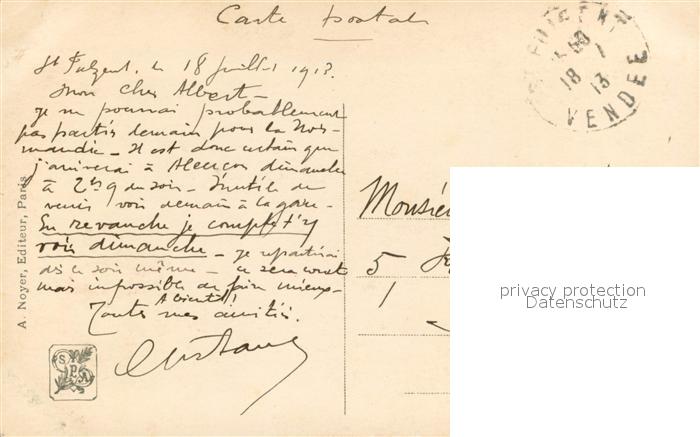 Carte postale
St Fulgent, le 18 Juillet 1913.
Mon cher Albert –
je ne pourrai probablement
pas partir demain pour la Nor-
mandie – Il est donc certain que
j'arriverai à Alençon dimanche
à 2h 9 du soir – Inutile de
venir voir demain à la gare –
En revanche je compte t'y
voir dimanche – je repartirai
dès le soir même – ce sera court
mais impossible de faire mieux –
A bientôt!
Toutes mes amitiés.
A. Noyer, Editeur, Paris
VENDÉE
18
13
Monsie
5
1
privacy protection
Datenschutz